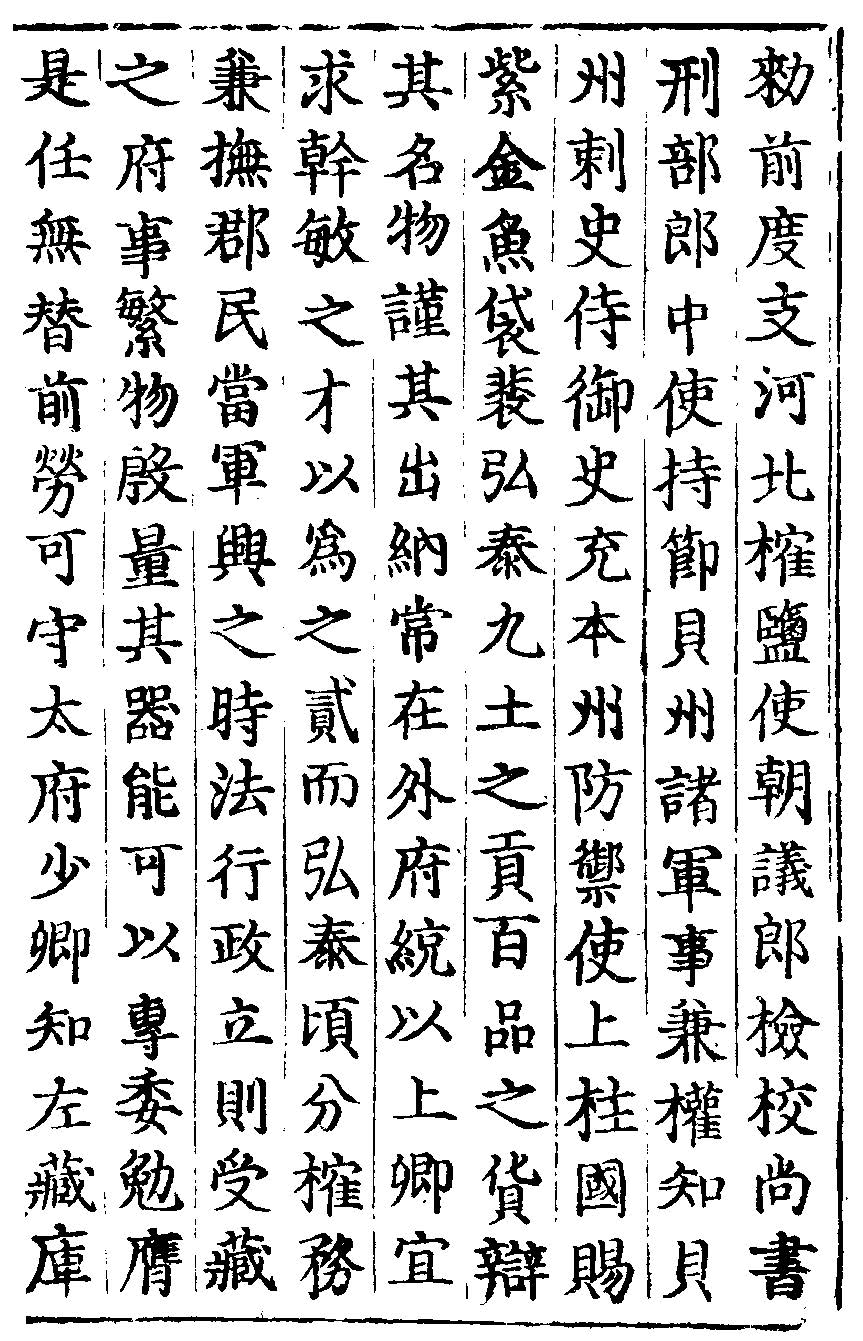 勑前度支河北榷鹽使朝議郎檢校尚書
刑部郎中使持節貝州諸軍事兼權知貝
州刺史侍御史充本州防禦使上柱國賜
紫金魚袋裴弘泰九土之貢百品之貨辯
其名物謹其出納常在外府統以上卿宜
求幹敏之才以爲之貳而弘泰頃分榷務
兼撫郡民當軍興之時法行政立則受藏
之府事繁物殷量其器能可以專委勉膺
是任無替前勞可守太府少卿知左藏庫